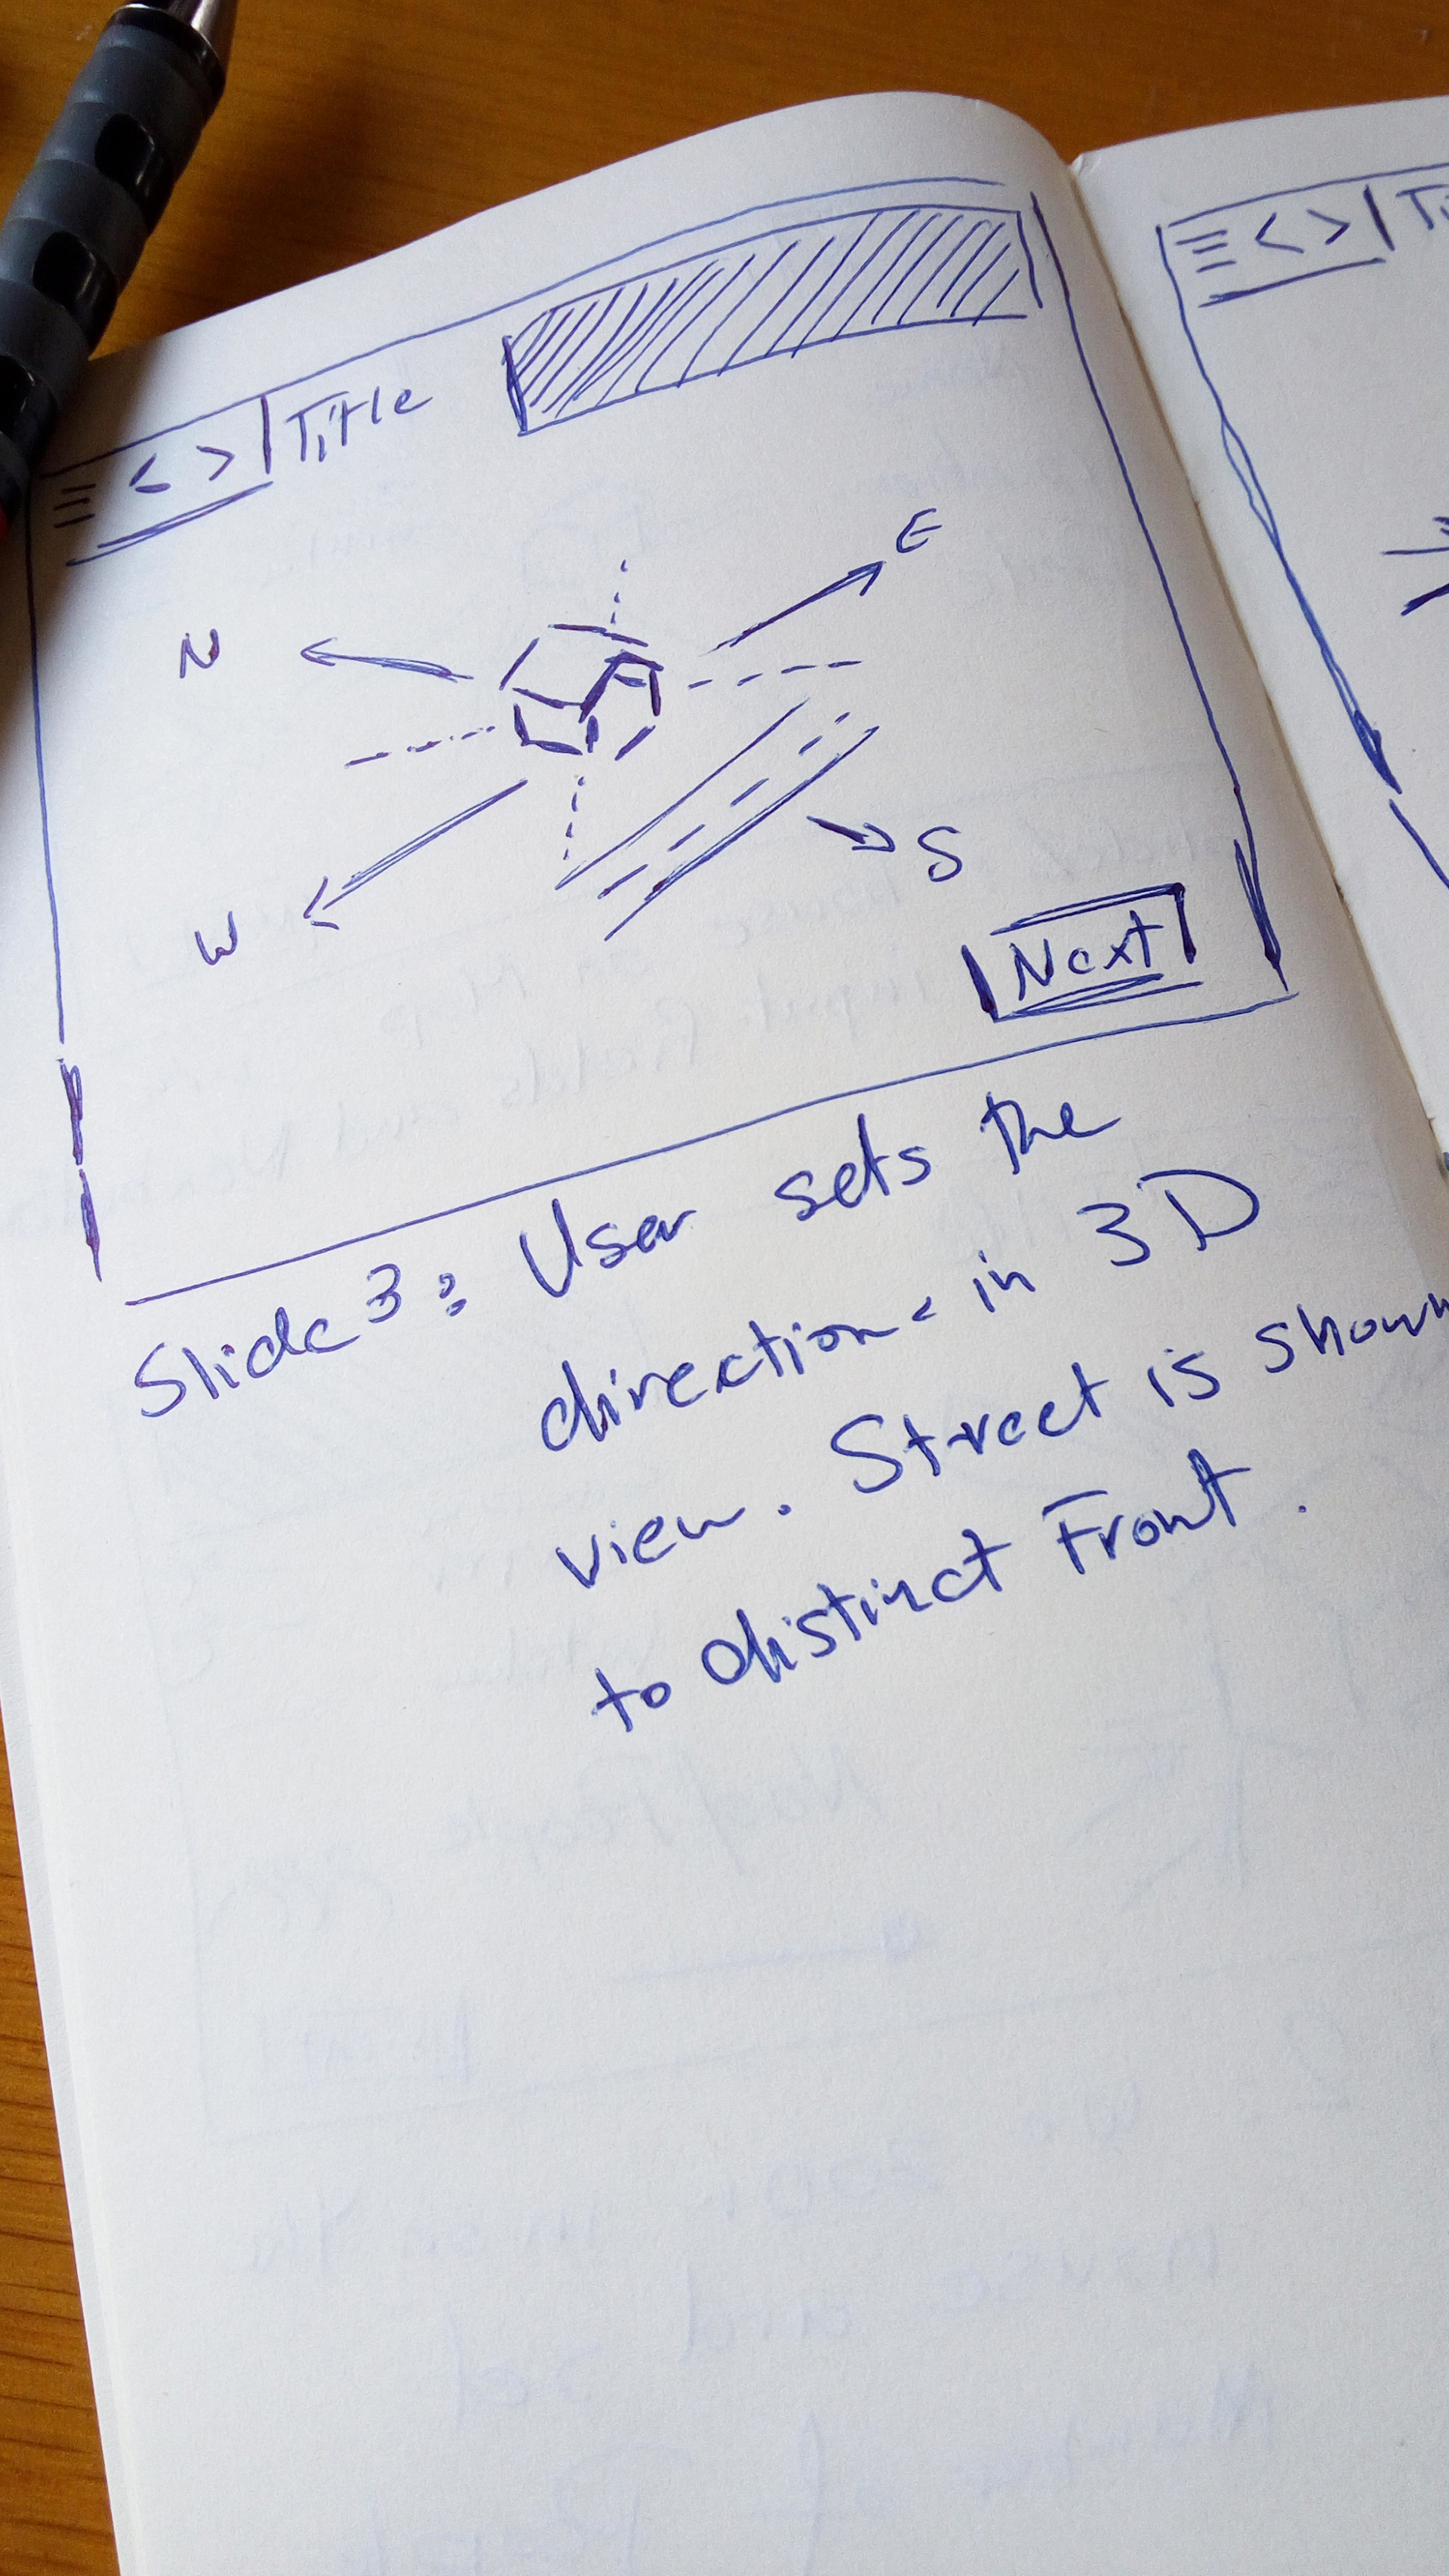 < > | Title
E
N
S
W
Next
Slide 3: User sets the
direction in 3D
view. Street is shown
to distinct Front.
< > | Ti